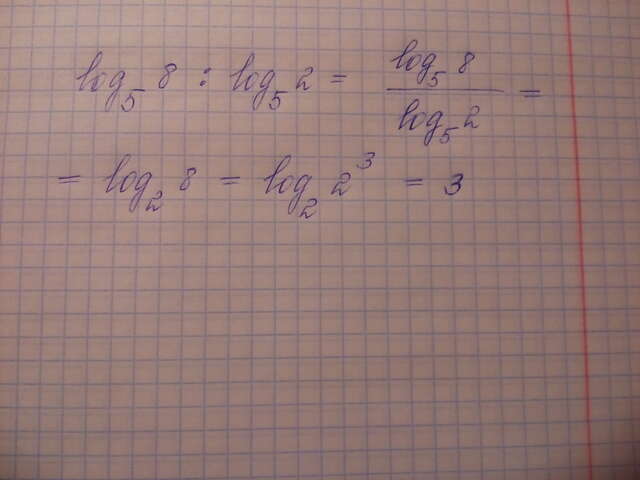 log₅ 8 : log₅ 2 = log₅ 8 / log₅ 2 =
= log₂ 8 = log₂ 2³ = 3